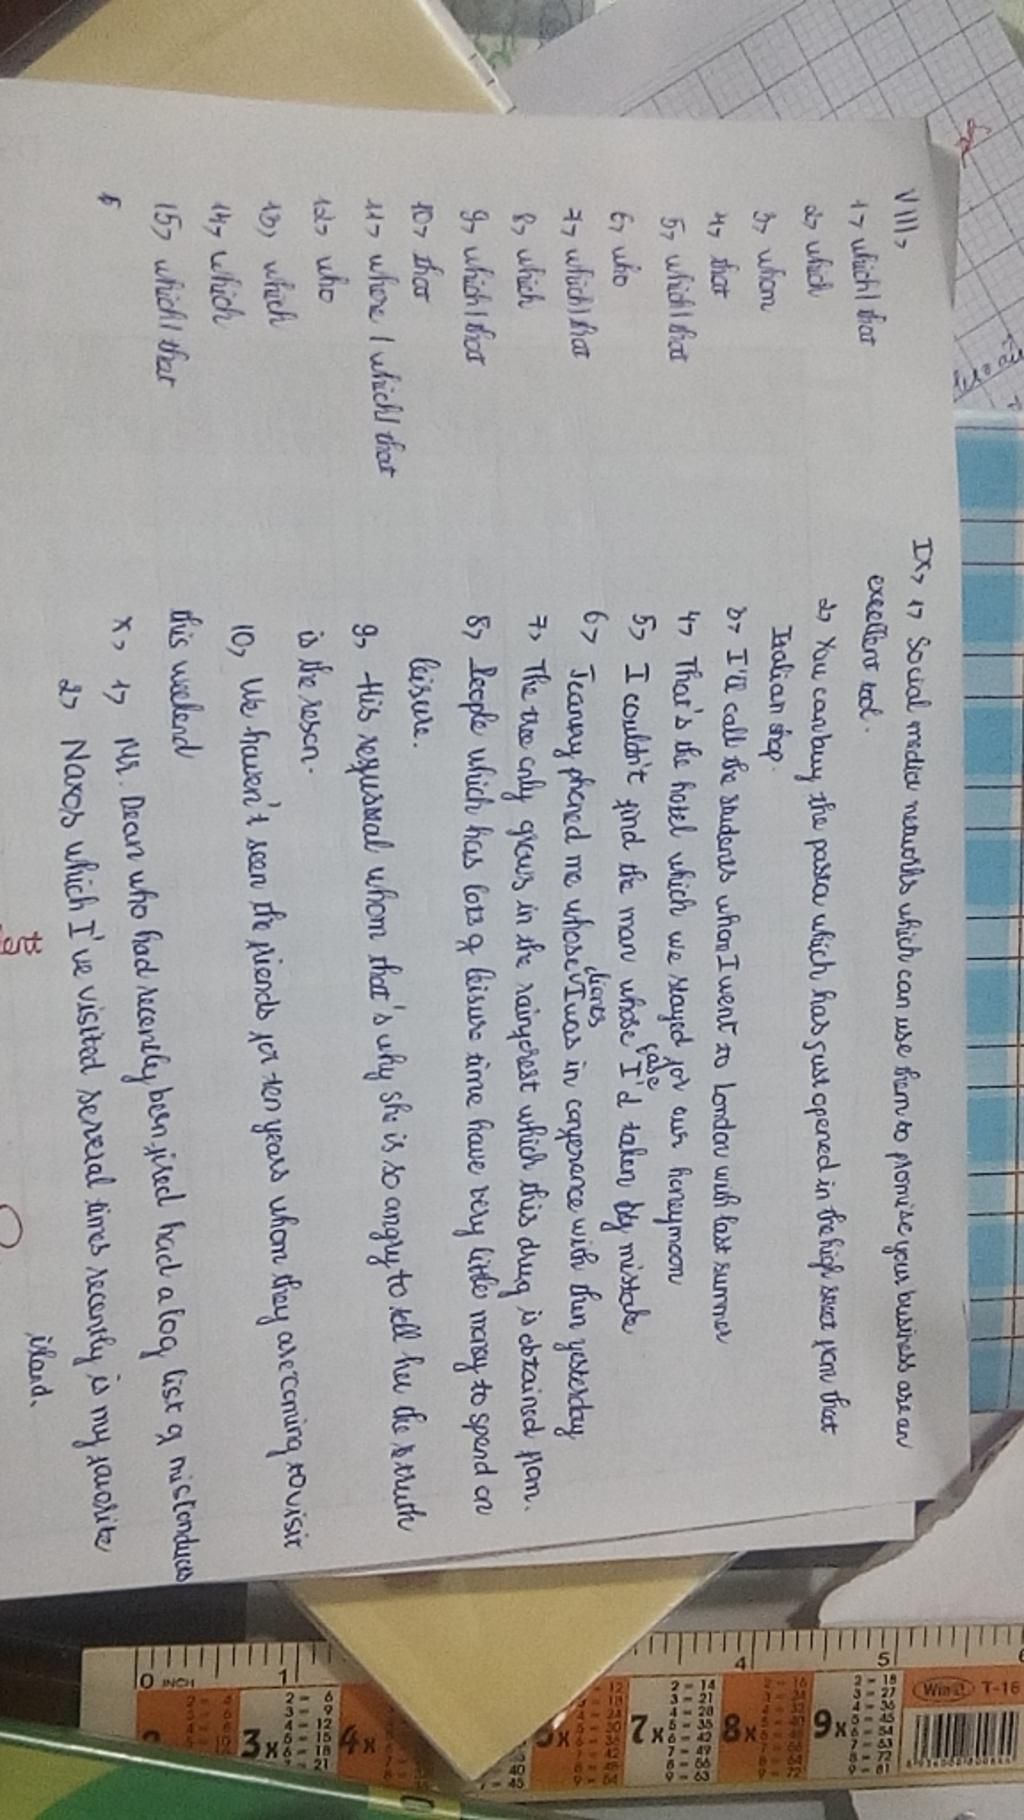 VIII,
1, which / that
2, which
3, whom
4, that
5, which / that
6, who
7, which / that
8, which
9, which / that
10, that
11, where / which / that
12, who
13, which
14, which
15, which / that
IX, 1, Social media networks which can use them to promise your business are an
excellent tool.
2, You can buy the pasta which has just opened in the high street from that
Italian shop.
3, I'll call the students whom I went to London with last summer
4, That's the hotel which we stayed for our honeymoon
5, I couldn't find the man whose case I'd taken by mistake
6, phoned me whose clients I was in conference with then yesterday
7, The tree only grows in the rainforest which this drug is obtained from.
8, People which has lots of leisure time have very little money to spend on
leisure.
9, His refussal whom that's why she is so angry to tell her the truth
is the reson.
10, We haven't seen the friends for ten years whom they are coming to visit
this weekend
X, 1, Mr. Dean who had recently been fired had a log list of misconduces
2, Naxos which I've visited several times recently is my favorite
island.
0 INCH
1
4
5
3x
4x
7x
8x
9x
Win
T-16